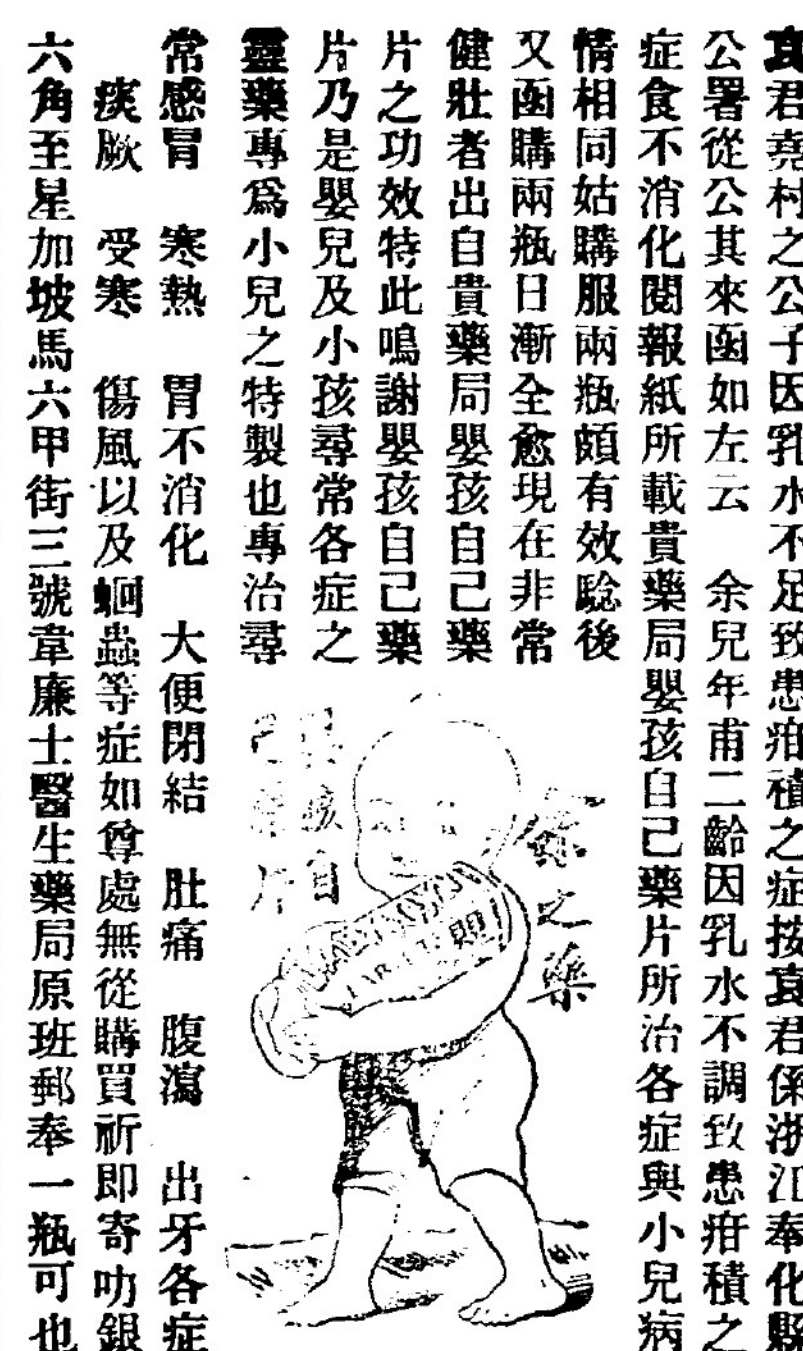 袁君堯村之公子因乳水不足致患疳積之症按袁君係浙江奉化縣
公署從公其來函如左云　余兒年甫二齡因乳水不調致患疳積之
症食不消化閱報紙所載貴藥局嬰孩自己藥片所治各症與小兒病
情相同姑購服兩瓶頗有效驗後
又函購兩瓶日漸全愈現在非常
健壯者出自貴藥局嬰孩自己藥
片之功效特此鳴謝嬰孩自己藥
片乃是嬰兒及小孩尋常各症之
靈藥專爲小兒之特製也專治尋
常感冒　寒熱　胃不消化　大便閉結　肚痛　腹瀉　出牙各症
痰厥　受寒　傷風以及蛔蟲等症如尊處無從購買祈即寄叻銀
六角至星加坡馬六甲街三號韋廉士醫生藥局原班郵奉一瓶可也
之藥
嬰孩自
己藥片